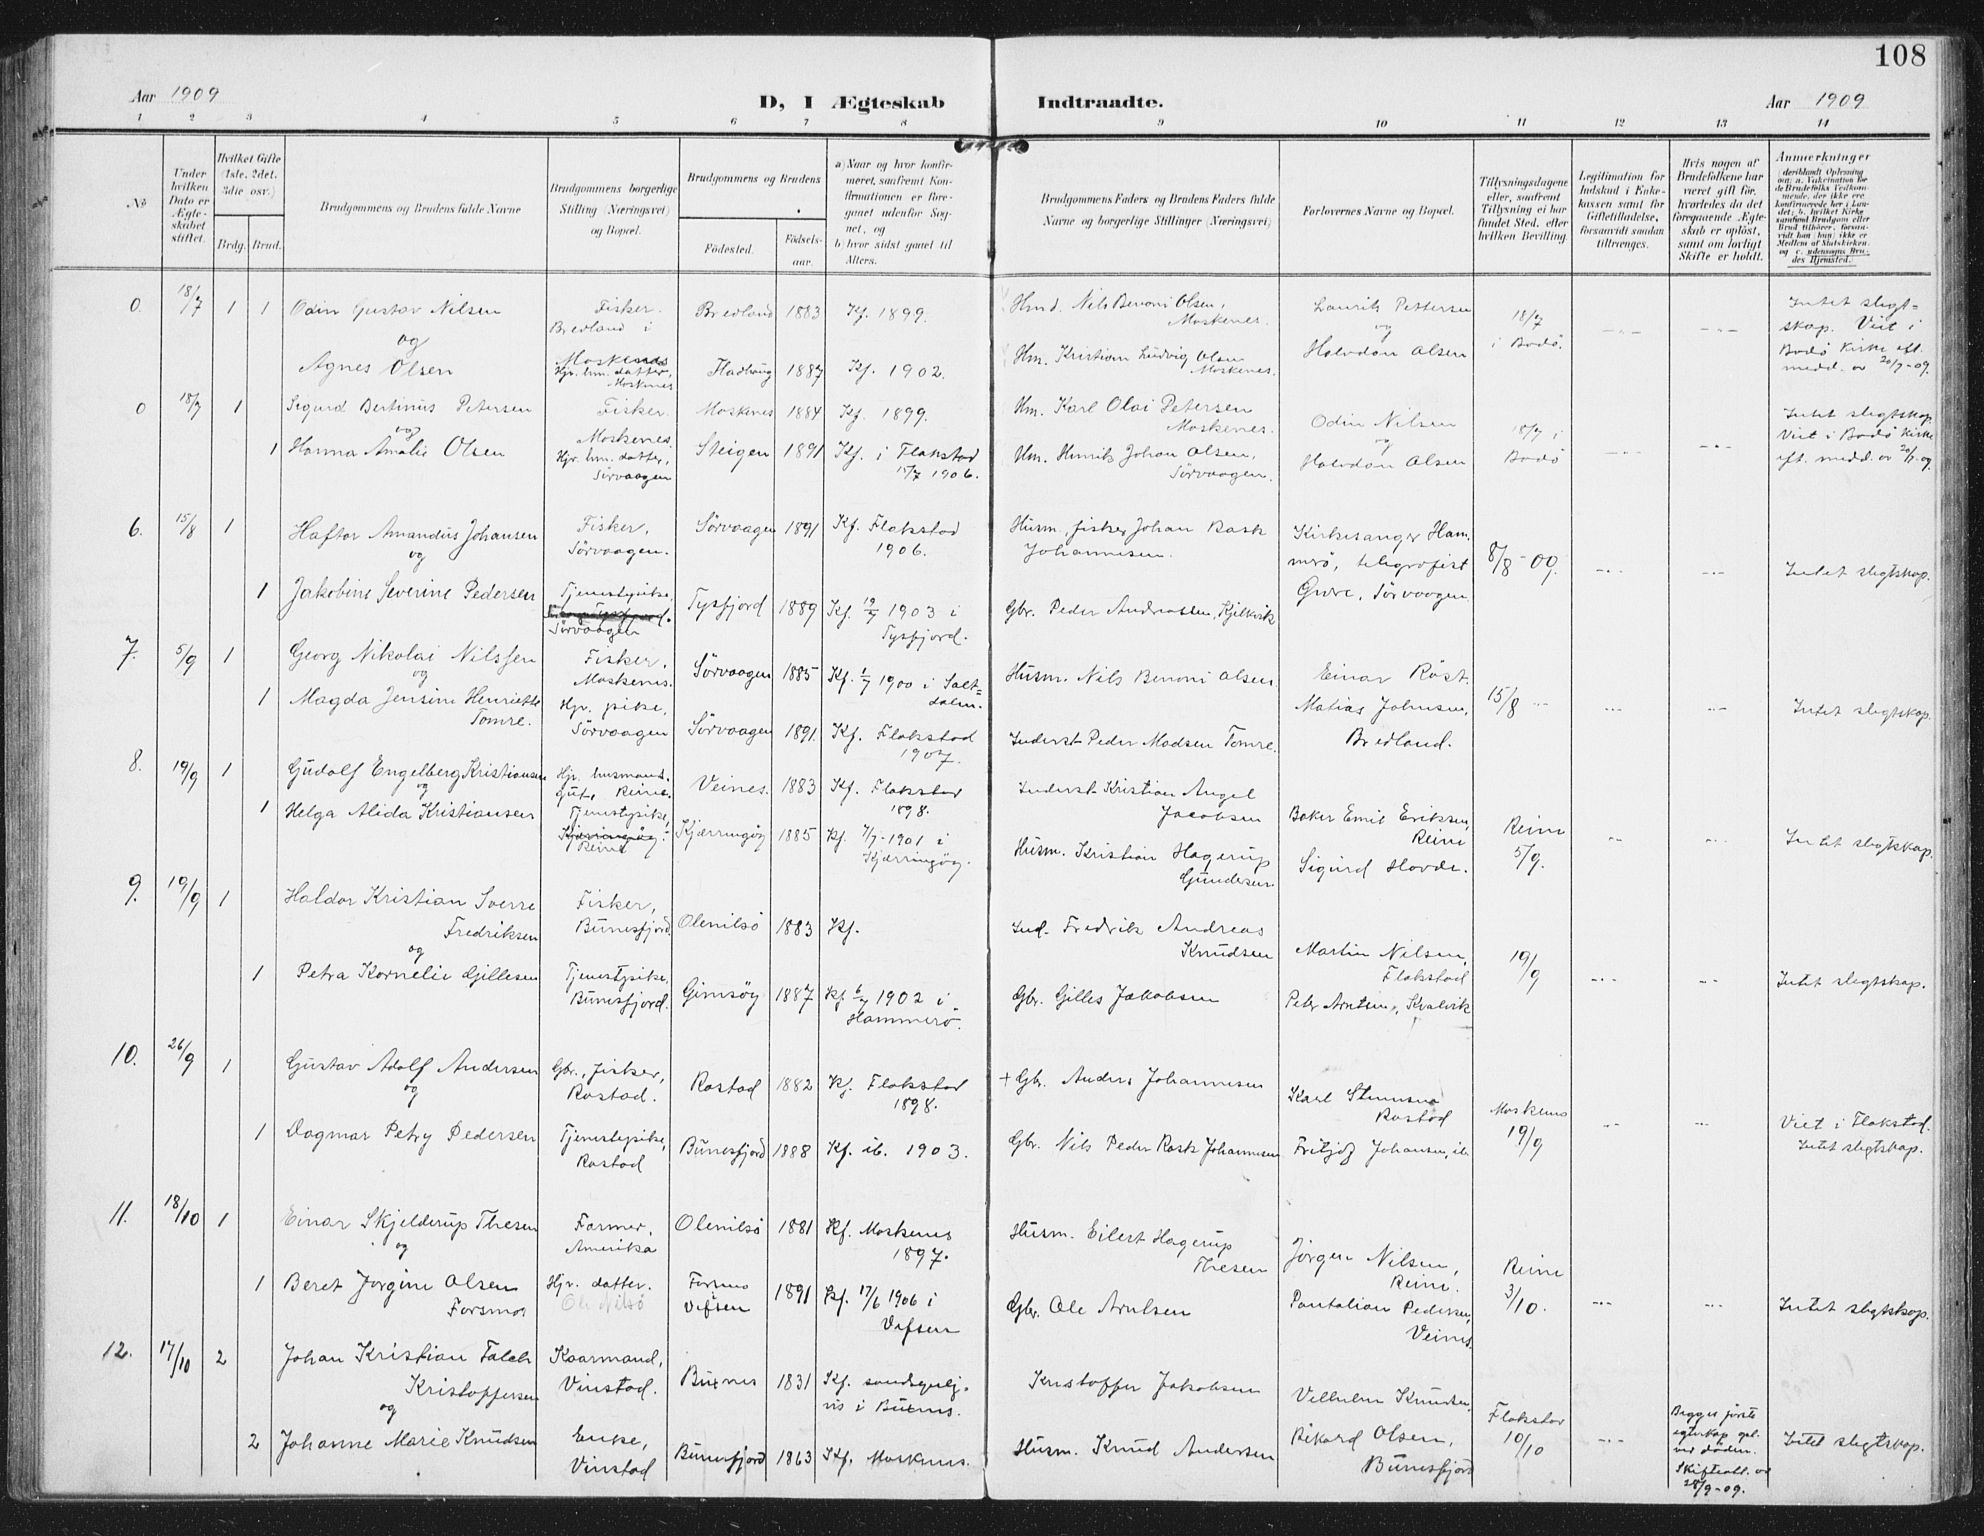 108
Aar 1909
D, I Ægteskab Indtraadte.
Aar 1909
1 2 3 4 5 6 7 8 9 10 11 12 13 14
No
Under hvilken Dato er Ægteskabet stiftet.
Hvilket Gifte (1ste, 2det, 3die osv.)
Brdg. Brud.
Brudgommens og Brudens fulde Navne
Brudgommens borgerlige Stilling (Næringsvei) og Bopæl.
Brudgommens og Brudens
Fødested.
Fødselsaar.
a) Naar og hvor konfirmeret, saafremt Konfirmationen er foregaaet udenfor Sognet, og
b) hvor sidst gaaet til Alters.
Brudgommens Faders og Brudens Faders fulde Navne og borgerlige Stillinger (Næringsvei)
Forlovernes Navne og Bopæl.
Tillysningsdagene eller, saafremt Tillysning ei har fundet Sted, efter hvilken Bevilling.
Legitimation for Indskud i Enkekassen samt for Giftetilladelse, forsaavidt saadan tiltrænges.
Hvis nogen af Brudefolkene har været gift før, hvorledes da det foregaaende Ægteskab er opløst, samt om lovligt Skifte er holdt.
Anmærkninger (deriblandt Oplysning om: a. Vakcination for de Brudefolks Vedkommende, der ikke ere konfirmerede her i Landet; b. hvilket Kirkesamfund Brudgom eller Brud tilhører, forsaavidt han (hun) ikke er Medlem af Statskirken. og c. udensogns Brudes Hjemsted.)
0. 18/7 1 1 Odin Gustav Nilsen
og
Agnes Olsen
Fisker.
Bredland i
Moskenes
Hjv. hm. datter,
Moskenes
Bredland 1883 Kf. 1899.
Hadbaug 1887 Kf. 1902.
Hmd. Nils Benoni Olsen,
Moskenes.
Hm. Kristian Ludvig Olsen
Moskenes.
Laurits Pettersen
og
Halvdan Olsen
18/7
i Bodö.
Intet slegt=
skap. Viet i
Bodö Kirke eft.
medd. av 20/7-09.
0 18/7 1 Sigurd Bertinus Petersen
og
1 Hanna Amalie Olsen
Fisker.
Moskenes.
Hjv. hm. datter,
Sörvaagen
Moskenes 1884 Kf. 1899.
Steigen 1891 Kf. i Flakstad
15/7 1906.
Hm. Karl Olai Petersen
Moskenes.
Hm. Henrik Johan Olsen,
Sörvaagen.
Odin Nilsen
og
Halvdan Olsen
18/7 i
Bodö
Intet slegtskap.
Viet i Bodö Kirke
eft. medd. av 20/7-09.
6. 15/8 1 Haftor Amandus Johansen
og
1 Jakobine Severine Pedersen
Fisker,
Sörvaagen.
Tjenestepike,
Sörvaagen
Sörvaagen 1891 Kf. Flakstad
1906.
Tysfjord 1889 Kf. 19/7 1903 i
Tysfjord.
Husm., fisker Johan Rask
Johannesen.
Gbr. Peder Andreassen, Kjelkvik
Kirkesanger Ham.
merö, telegrafist
Gwre, Sörvaagen.
8/8-09.
Intet slegtskap.
7. 5/9 1 Georg Nikolai Nilssen
og
1 Magda Jensine Henriette
Tomre.
Fisker.
Moskenes.
Hjv. pike,
Sörvaagen
Sörvaagen 1885 Kf. 1/7 1900 i Salt=
dalen.
Sörvaagen 1891. Kf. Flakstad
1907.
Husm. Nils Benoni Olsen
Inderst Peder Madsen Tomre.
Einar Röst.
Matias Johnsen,
Bredland.
15/8
Intet slegtskap.
8. 19/9 1 Gudolf Engelberg Kristiansen
og
1 Helga Alida Kristiansen
Hjv. husmand.
Gut, Reine.
Tjenestepike,
Kjærringöy.
Reine
Veines. 1883 Kf. Flakstad
1898.
Kjærringöy 1885 Kf. 7/7-1901 i
Kjærringöy.
Inderst Kristian Angel
Jacobsen
Husm. Kristian Hagerup
Gundersen
Baker Emil Eriksen,
Reine
Sigurd Hovde.
Reine
5/9.
Intet slegtskap.
9. 19/9 1 Haldor Kristian Sverre
Fredriksen
og
1 Petra Kornelie Gillesen
Fisker,
Bunesfjord
Tjenestepike,
Bunesfjord.
Olenilsö 1883 Kf.
Gimsöy 1887 Kf. 6/7 1902 i
Hammerö.
Ind. Fredrik Andreas
Knudsen
Gbr. Gilles Jakobsen
Martin Nilsen,
Flakstad
Peter Arntsen, Kvalvik
19/9
Intet slegtskap.
10. 26/9 1 Gustav Adolf Andersen
og
1 Dagmar Petry Pedersen
Gbr., fisker,
Rostad.
Tjenestepike,
Rostad
Rostad 1882 Kf. Flakstad
1898.
Bunesfjord 1888 Kf. ib. 1903.
+ Gbr. Anders Johannesen
Gbr. Nils Peder Rask Johannesen
Karl
Rostad
Fritjof Johansen, ib
Moskenes
19/9
Viet i Flakstad.
Intet slegtskap.
11. 18/10 1 Einar Skjelderup Thesen
og
1 Beret Jorgine Olsen
Forsmo.
Farmer,
Amerika
Hjv. datter.
Ole Nilsö
Olenilsö 1881 Kf. Moskenes
1897.
Forsmo
Vefsen 1891 Kf. 17/6 1906 i
Vefsen
Husm. Eilert Hagerup
Thesen
Gbr. Ole Arntsen
Jörgen Nilsen,
Reine.
Pantalian Pedersen,
Veines.
Reine
3/10.
Intet slegtskap.
12. 17/10 2 Johan Kristian Falch
Kristoffersen
og
2 Johanne Marie Knudsen
Kaarmand,
Vinstad.
Enke,
Vinstad
Buxnes 1831 Kf. sandsynlig=
vis i Buxnes.
Bunesfjord 1863 Kf. Moskenes.
Kristoffer Jakobsen
Husm. Knud Andersen
Vilhelm Knudsen,
Rikard Olsen,
Bunesfjord
Flakstad
10/10
Begges förste
egteskap opl.
ved döden.
Skifteatt. av
28/9-09.
Intet slegtskap.